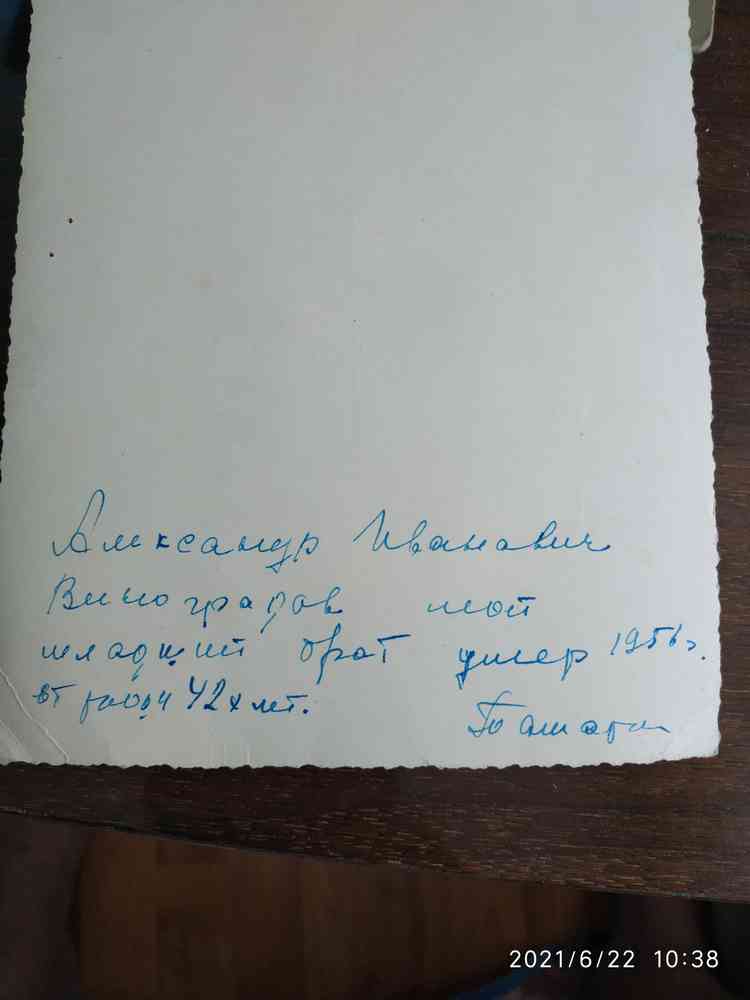 Александр Иванович
Виноградов мой
младший брат умер 1956г.
от 42х лет.
2021/6/22 10:38